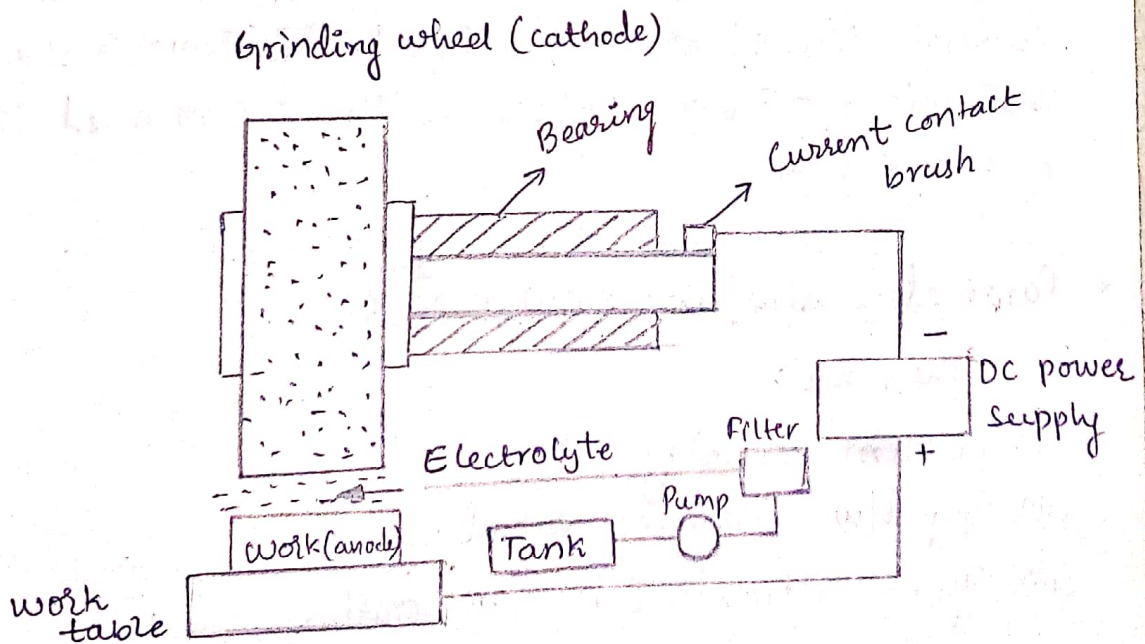 Grinding wheel (cathode)
Bearing
Current contact
brush
−
DC power
supply
+
Filter
Electrolyte
Pump
Tank
Work (anode)
work
table